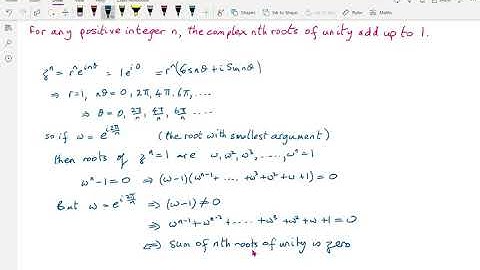 For any positive integer n, the complex nth roots of unity add up to 1.
zⁿ = rⁿe^{inθ} = 1e^{i0} = rⁿ(Cosnθ + i Sinnθ)
⇒ r=1, nθ = 0, 2π, 4π, 6π, ....
⇒ θ = 0, 2π/n, 4π/n, 6π/n ....
so if ω = e^{i2π/n} (the root with smallest argument)
then roots of zⁿ=1 are ω, ω², ω³, ....., ωⁿ=1
ωⁿ-1=0 ⇒ (ω-1)(ωⁿ⁻¹+ .... +ω³+ω²+ω+1)=0
But ω = e^{i2π/n} ⇒ (ω-1)≠0
⇒ ωⁿ⁻¹+ωⁿ⁻²+ ..... +ω³+ω²+ω+1=0
⇔ Sum of nth roots of unity is zero